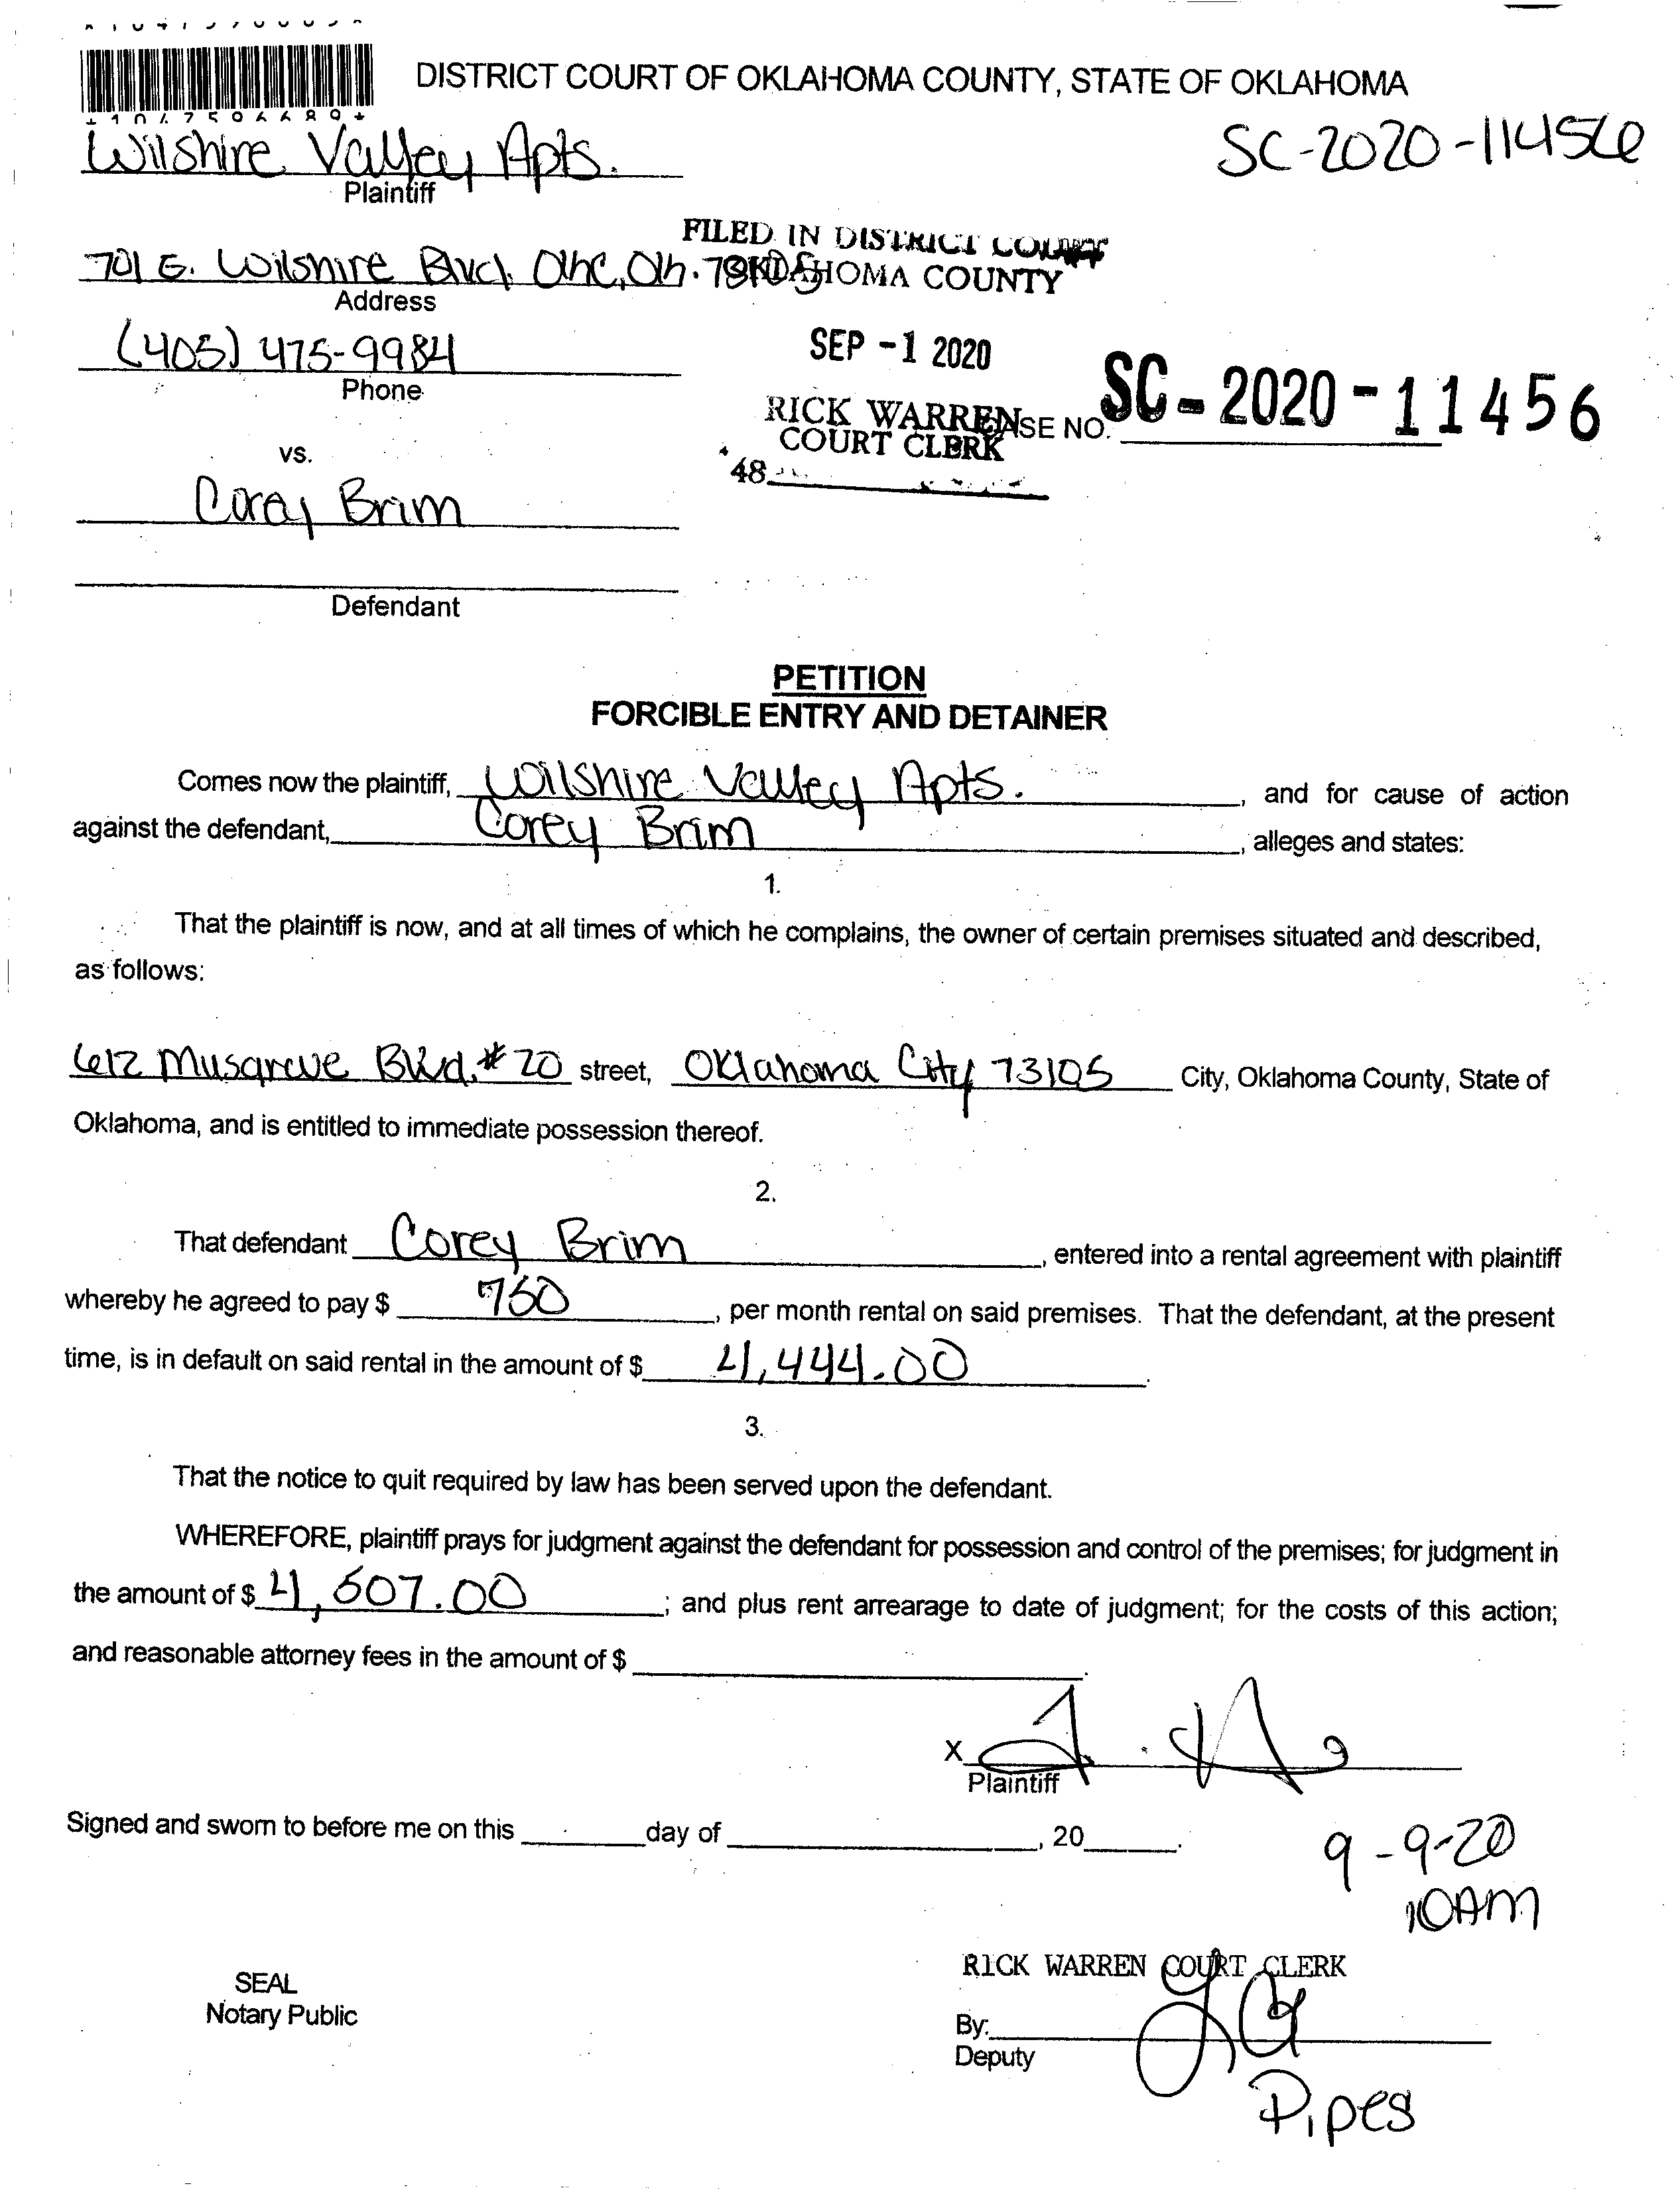 DISTRICT COURT OF OKLAHOMA COUNTY, STATE OF OKLAHOMA
Wilshire Valley Apts.
SC-2020-11456
Plaintiff
FILED IN DISTRICT COURT
OKLAHOMA COUNTY
701 E. Wilshire Blvd. Okc, Ok.
Address
(405) 475-9984
Phone
SEP -1 2020
RICK WARREN
COURT CLERK
48
CASE NO. SC-2020-11456
vs.
Corey Brim
Defendant
PETITION
FORCIBLE ENTRY AND DETAINER
Comes now the plaintiff, Wilshire Valley Apts., and for cause of action
against the defendant, Corey Brim, alleges and states:
1.
That the plaintiff is now, and at all times of which he complains, the owner of certain premises situated and described,
as follows:
612 Musgrave Blvd. #20 street, Oklahoma City 73105 City, Oklahoma County, State of
Oklahoma, and is entitled to immediate possession thereof.
2.
That defendant Corey Brim, entered into a rental agreement with plaintiff
whereby he agreed to pay $ 750, per month rental on said premises. That the defendant, at the present
time, is in default on said rental in the amount of $ 4,444.00.
3.
That the notice to quit required by law has been served upon the defendant.
WHEREFORE, plaintiff prays for judgment against the defendant for possession and control of the premises; for judgment in
the amount of $ 4,507.00; and plus rent arrearage to date of judgment; for the costs of this action;
and reasonable attorney fees in the amount of $.
X
Plaintiff
Signed and sworn to before me on this day of , 20.
9-9-20
10AM
RICK WARREN COURT CLERK
SEAL
Notary Public
By:
Deputy
Pipes